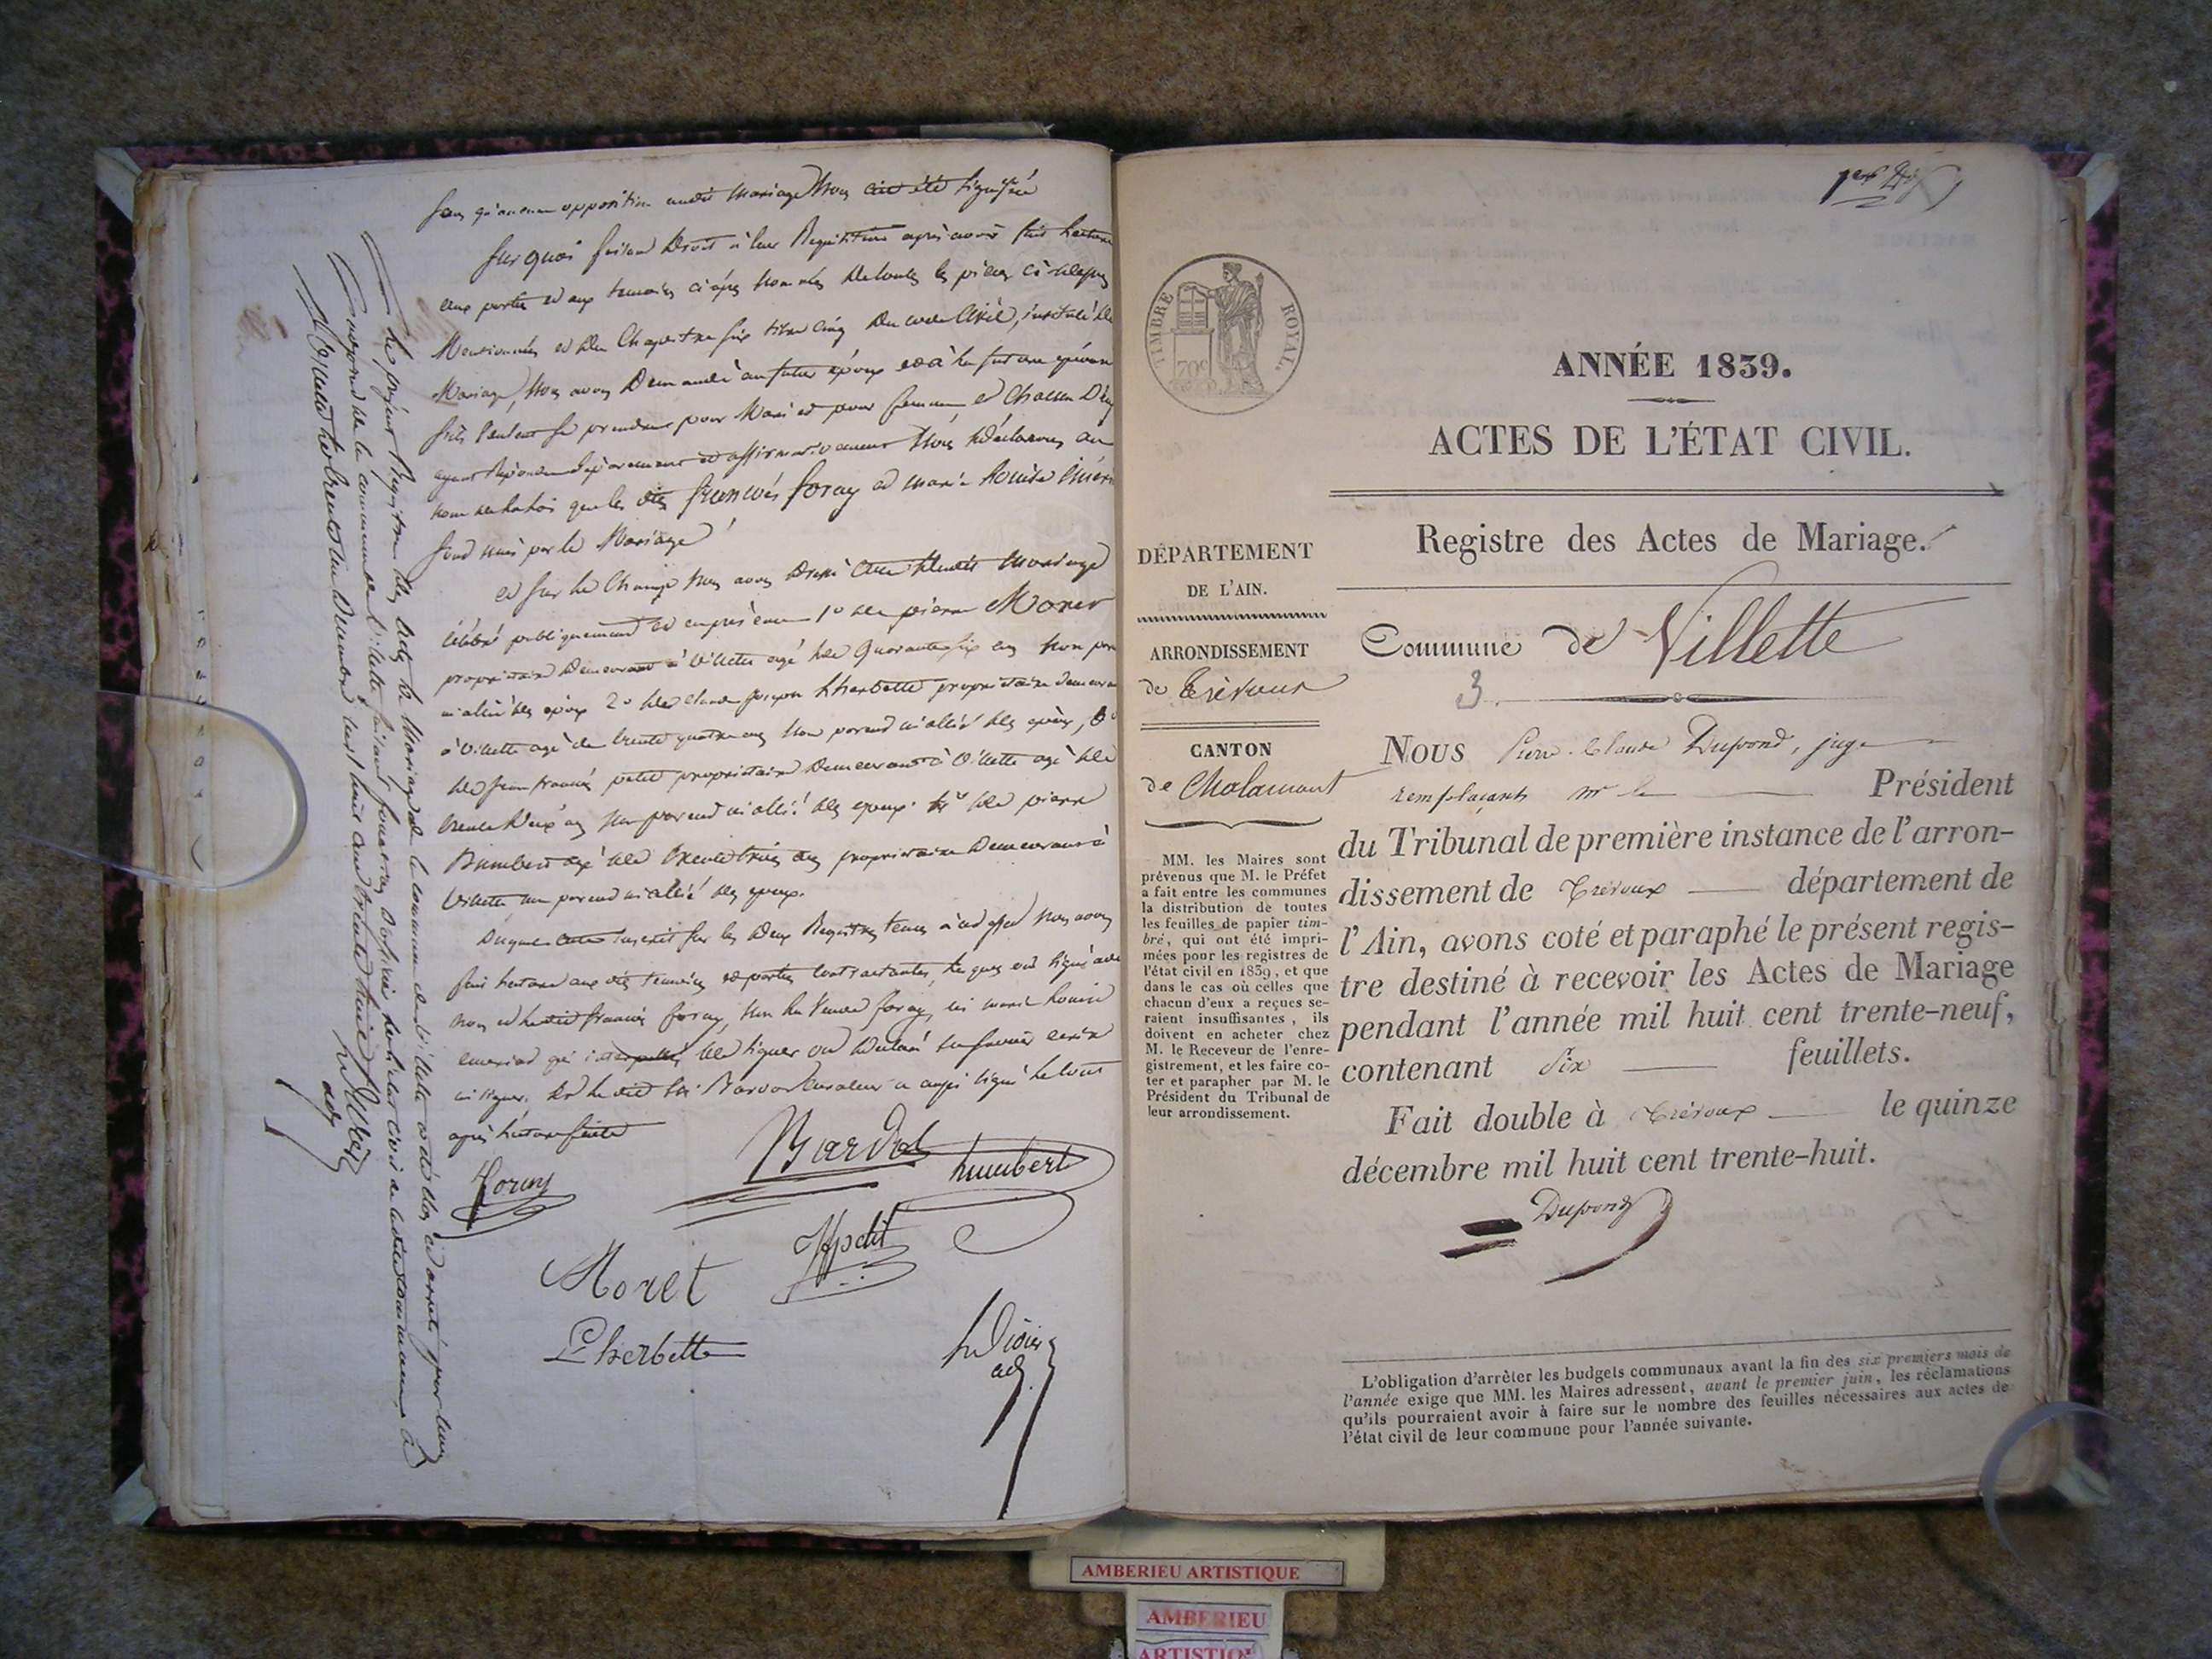 sans qu'aucune opposition audit mariage nous ait été signifiée
Sur quoi faisant Droit à leur Requisition après avoir fait lecture
aux parties et aux temoins ci après nommés de toutes les pièces ci dessus
Mentionnées et du Chapitre six titre cinq du code Civil, intitulé du
Mariage, Nous avons Demandé au futur époux et à la future épouse
s'ils Veulent se prendre pour Mari et pour femme et Chacun D'eux
ayant Répondu Séparement et affirmativement Nous déclarons au
nom de la loi que les dits françois foray et marie Louise
sont unis par le Mariage
et sur le Champ nous avons Dressé acte dudit mariage
célébré publiquement et en présence 1° de pierre Moret
propriétaire Demeurant à Villette agé de Quarante six ans non parent
ni allié des époux 2° de claude joseph Lherbette propriétaire demeurant
à Villette agé de trente quatre ans non parent ni allié des époux, 3°
de jean françois petit propriétaire Demeurant à Villette agé de
trente deux ans non parent ni allié des epoux. 4° de pierre
humbert agé de trente trois ans propriétaire Demeurant à
Villette non parent ni allié des epoux.
Duquel acte inscrit sur les deux Registres tenus à cet effet nous avons
fait lecture aux dits temoins et parties contractantes, lesquels ont signé avec
nous et ledit françois foray, non la Veuve foray, ni marie Louise
qui de signer ont déclaré ne savoir écrire
ni signer. et le dit a aussi signé le tout
après lecture faite
Foray
Bardol
humbert
Jfpetit
Moret
Lherbette
Didier
adj.
Le présent Registre des actes de Mariage de la commune de Villette a été clos et arrêté par nous
adjoint de la commune de Villette faisant fonctions d'officier de l'état civil
A Villette le trente un Décembre mil huit cent trente huit
adj
1er
TIMBRE ROYAL.
70c
ANNÉE 1839.
ACTES DE L'ÉTAT CIVIL.
Registre des Actes de Mariage.
Commune de Villette
3
DÉPARTEMENT
DE L'AIN.
ARRONDISSEMENT
de Trévoux
CANTON
de Chalamont
MM. les Maires sont
prévenus que M. le Préfet
a fait entre les communes
la distribution de toutes
les feuilles de papier tim-
bré, qui ont été impri-
mées pour les registres de
l'état civil en 1839, et que
dans le cas où celles que
chacun d'eux a reçues se-
raient insuffisantes, ils
doivent en acheter chez
M. le Receveur de l'enre-
gistrement, et les faire co-
ter et parapher par M. le
Président du Tribunal de
leur arrondissement.
NOUS Pierre Claude Dupond, juge
remplaçant mr le Président
du Tribunal de première instance de l'arron-
dissement de Trévoux département de
l'Ain, avons coté et paraphé le présent regis-
tre destiné à recevoir les Actes de Mariage
pendant l'année mil huit cent trente-neuf,
contenant Six feuillets.
Fait double à Trévoux le quinze
décembre mil huit cent trente-huit.
Dupond
L'obligation d'arrêter les budgets communaux avant la fin des six premiers mois de
l'année exige que MM. les Maires adressent, avant le premier juin, les réclamations
qu'ils pourraient avoir à faire sur le nombre des feuilles nécessaires aux actes de
l'état civil de leur commune pour l'année suivante.
AMBERIEU ARTISTIQUE
AMBERIEU
ARTISTIQU